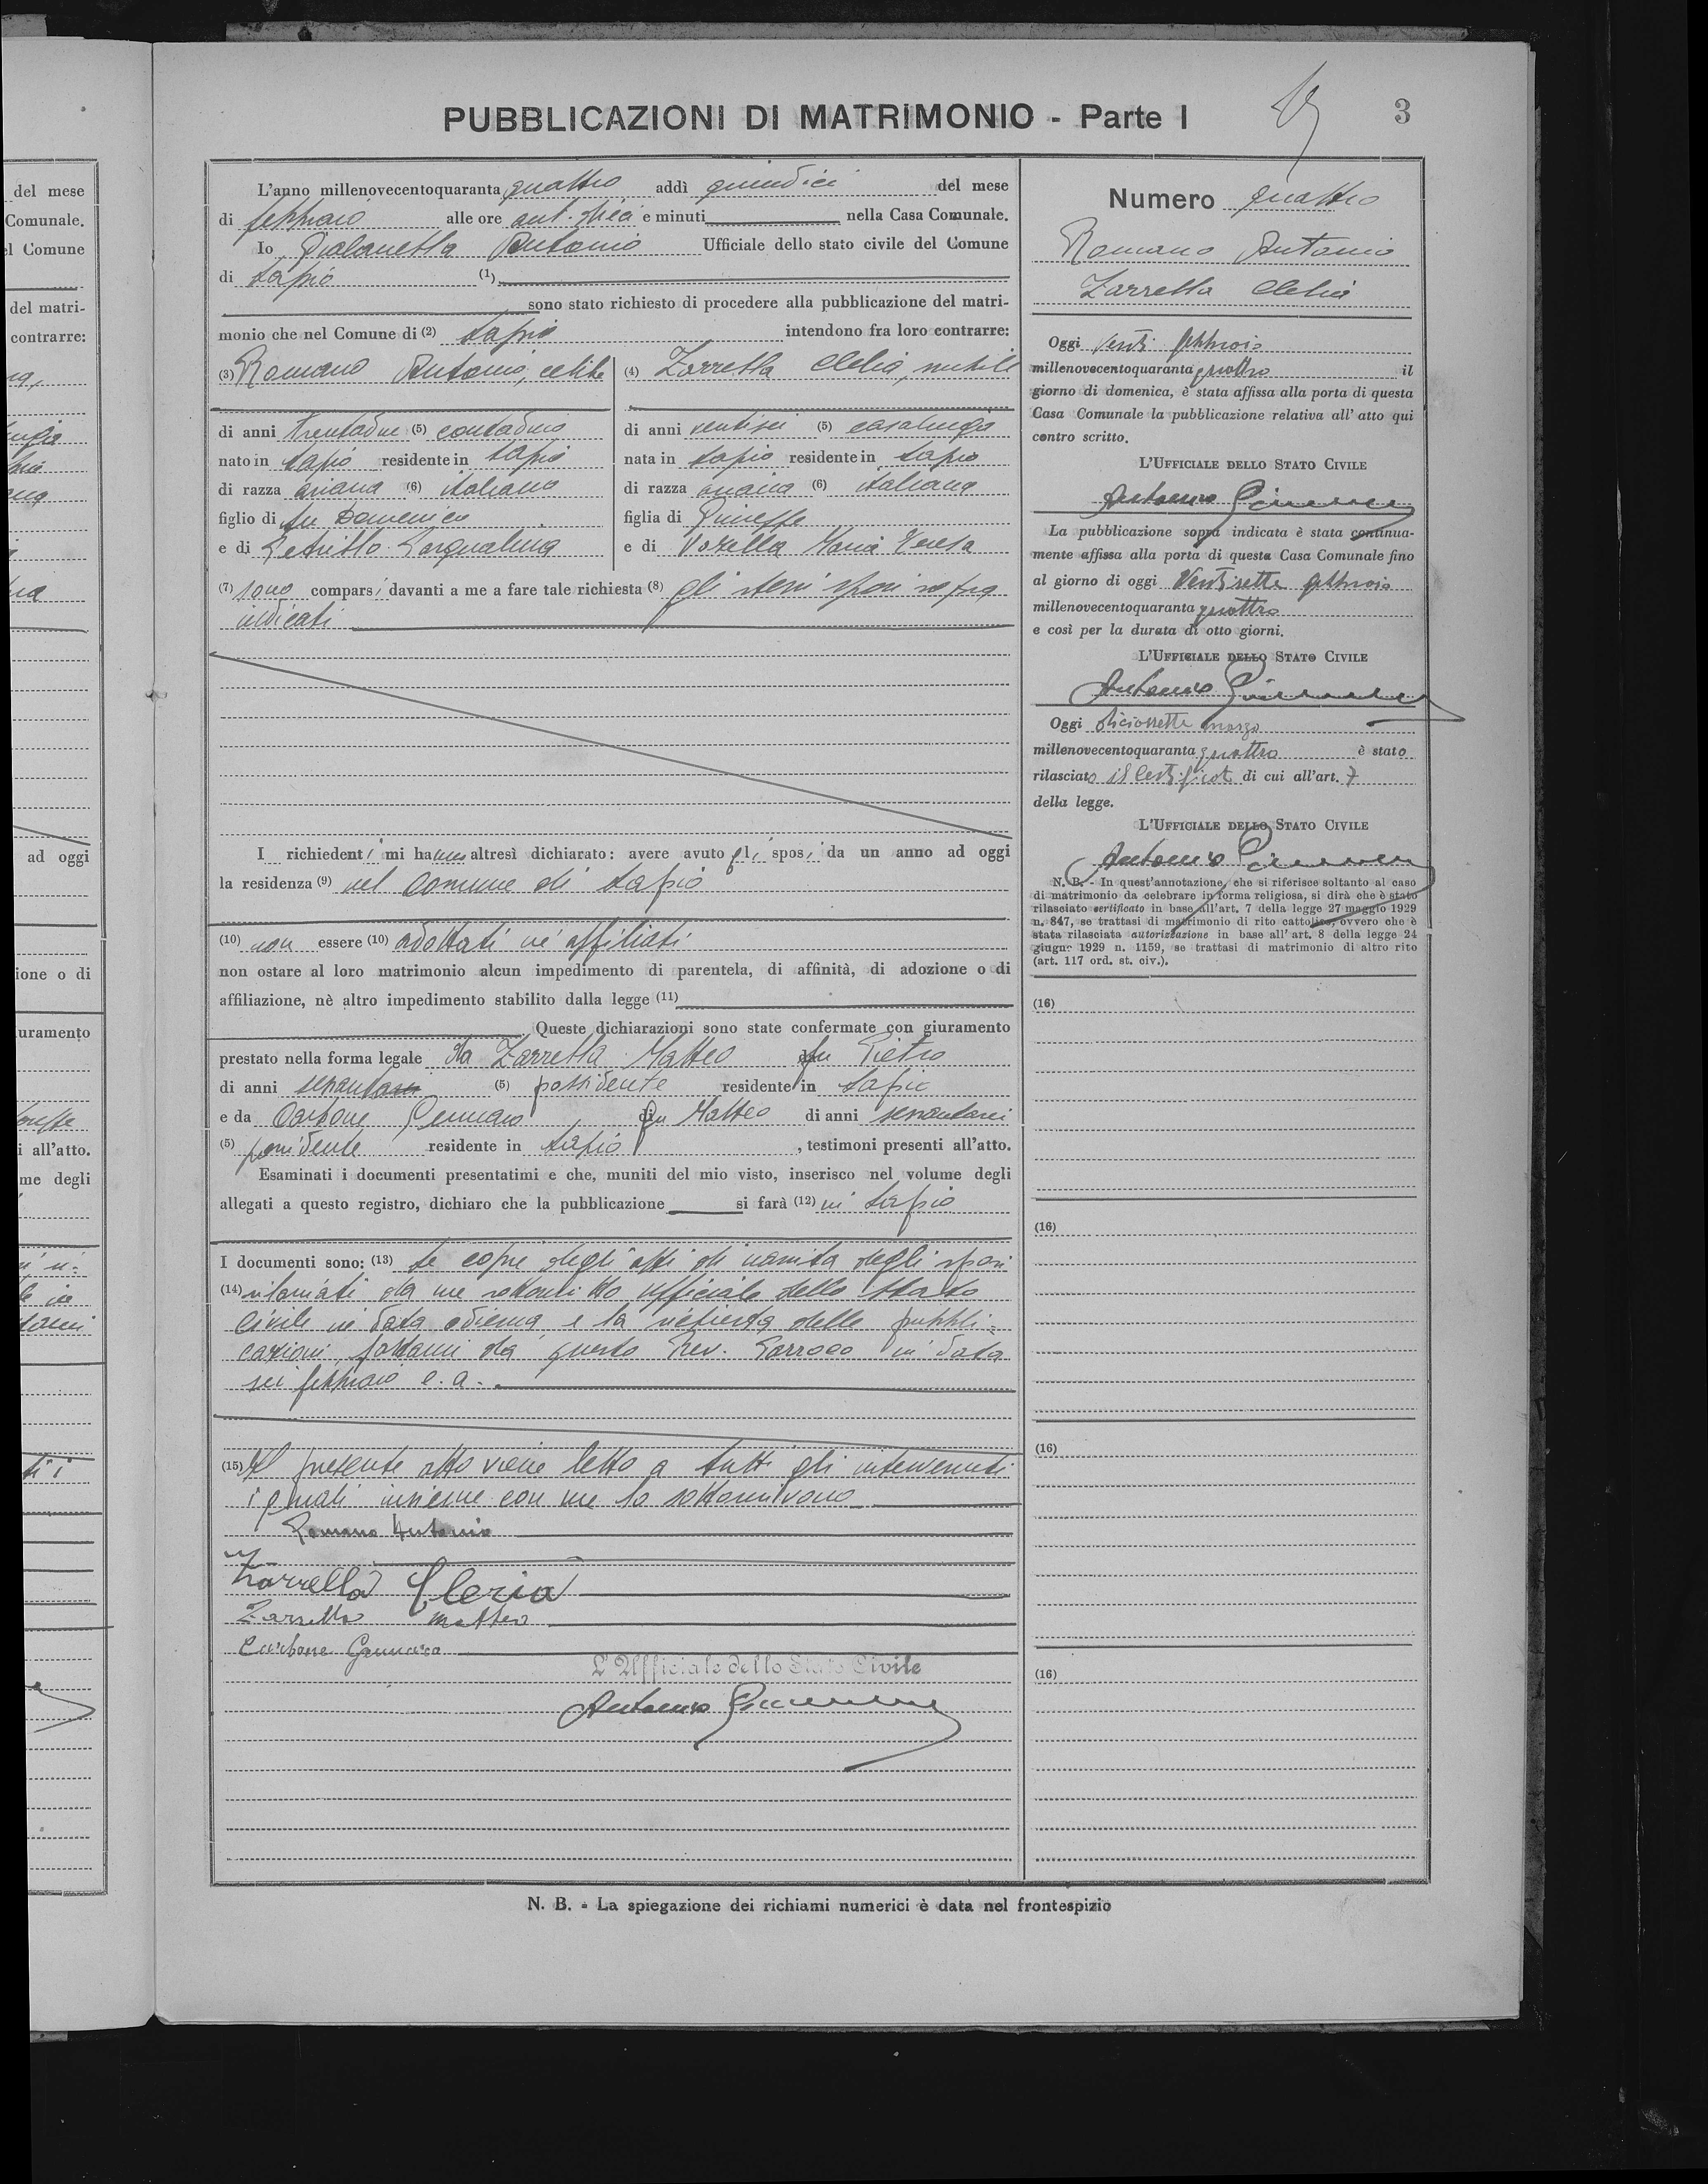 PUBBLICAZIONI DI MATRIMONIO - Parte I
3
L'anno millenovecentoquaranta quattro addì quindici del mese
di febbraio alle ore ant. dieci e minuti nella Casa Comunale.
Io Antonio Ufficiale dello stato civile del Comune
di Lapio (1)
sono stato richiesto di procedere alla pubblicazione del matri-
monio che nel Comune di (2) Lapio intendono fra loro contrarre:
(3) Romano Antonio, celibe
di anni trentadue (5) contadino
nato in Lapio residente in Lapio
di razza ariana (6) italiana
figlio di fu Domenico
e di Petrillo Pasqualina
(4) Zarrella Clelia, nubile
di anni ventisei (5) casalinga
nata in Lapio residente in Lapio
di razza ariana (6) italiana
figlia di Giuseppe
e di Maria Teresa
(7) sono comparsi davanti a me a fare tale richiesta (8) gli stessi sposi sopra
indicati
I richiedenti mi hanno altresì dichiarato: avere avuto gli sposi da un anno ad oggi
la residenza (9) nel Comune di Lapio
(10) non essere (10) adottati nè affiliati
non ostare al loro matrimonio alcun impedimento di parentela, di affinità, di adozione o di
affiliazione, nè altro impedimento stabilito dalla legge (11)
Queste dichiarazioni sono state confermate con giuramento
prestato nella forma legale da Zarrella Matteo fu Pietro
di anni (5) possidente residente in Lapio
e da Carbone Gennaro fu Matteo di anni sessantasei
(5) possidente residente in Lapio, testimoni presenti all'atto.
Esaminati i documenti presentatimi e che, muniti del mio visto, inserisco nel volume degli
allegati a questo registro, dichiaro che la pubblicazione si farà (12) in Lapio
I documenti sono: (13) le copie degli atti di nascita degli sposi
(14) rilasciati da me sottoscritto Ufficiale dello Stato
Civile in data odierna e la richiesta delle pubbli=
cazioni fattami da questo Rev. Parroco in data
sei febbraio c. a.
(15) Il presente atto viene letto a tutti gli intervenuti
i quali insieme con me lo sottoscrivono
Romano Antonio
Zarrella Clelia
Zarrella Matteo
Carbone Gennaro
L'Ufficiale dello Stato Civile
Antonio
N. B. - La spiegazione dei richiami numerici è data nel frontespizio
Numero quattro
Romano Antonio
Zarrella Clelia
Oggi venti febbraio
millenovecentoquaranta quattro il
giorno di domenica, è stata affissa alla porta di questa
Casa Comunale la pubblicazione relativa all'atto qui
contro scritto.
L'UFFICIALE DELLO STATO CIVILE
Antonio
La pubblicazione sopra indicata è stata continua-
mente affissa alla porta di questa Casa Comunale fino
al giorno di oggi Ventisette febbraio
millenovecentoquaranta quattro
e così per la durata di otto giorni.
L'UFFICIALE DELLO STATO CIVILE
Antonio
Oggi diciassette marzo
millenovecentoquaranta quattro è stato
rilasciato il certificato di cui all'art. 7
della legge.
L'UFFICIALE DELLO STATO CIVILE
Antonio
N. B. - In quest'annotazione, che si riferisce soltanto al caso
di matrimonio da celebrare in forma religiosa, si dirà che è stato
rilasciato certificato in base all'art. 7 della legge 27 maggio 1929
n. 847, se trattasi di matrimonio di rito cattolico, ovvero che è
stata rilasciata autorizzazione in base all'art. 8 della legge 24
giugno 1929 n. 1159, se trattasi di matrimonio di altro rito
(art. 117 ord. st. civ.).
(16)
(16)
(16)
(16)
del mese
Comunale.
el Comune
del matri-
contrarre:
ad oggi
ione o di
uramento
i all'atto.
me degli